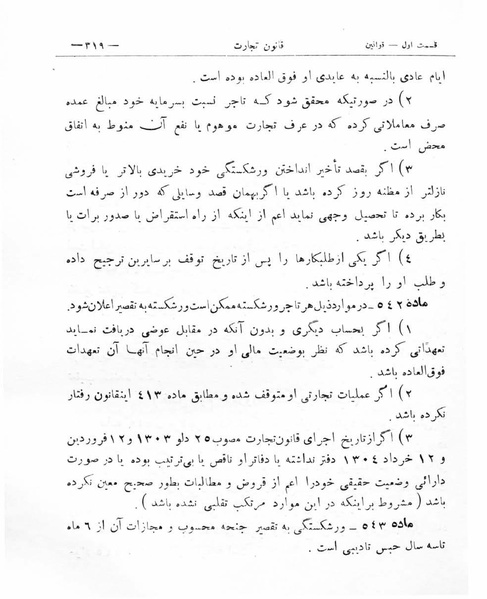 قسمت اول — قوانین
قانون تجارت
— ۳۱۹ —
ایام عادی بالنسبه به عایدی او فوق العاده بوده است .
۲) در صورتیکه محقق شود که تاجر نسبت بسرمایه خود مبالغ عمده
صرف معاملاتی کرده که در عرف تجارت موهوم یا نفع آن منوط به اتفاق
محض است .
۳) اگر بقصد تأخیر انداختن ورشکستگی خود خریدی بالاتر یا فروشی
نازلتر از مظنه روز کرده باشد یا اگر بهمان قصد وسایلی که دور از صرفه است
بکار برده تا تحصیل وجهی نماید اعم از اینکه از راه استقراض یا صدور برات یا
بطریق دیگر باشد .
٤) اگر یکی از طلبکارها را پس از تاریخ توقف بر سایرین ترجیح داده
و طلب او را پرداخته باشد .
ماده ٥٤٢ – در موارد ذیل هر تاجر ورشکسته ممکن است ورشکسته به تقصیر اعلان شود.
۱) اگر بحساب دیگری و بدون آنکه در مقابل عوضی دریافت نماید
تعهداتی کرده باشد که نظر بوضعیت مالی او در حین انجام آنها آن تعهدات
فوق‌العاده باشد .
۲) اگر عملیات تجارتی او متوقف شده و مطابق ماده ٤١٣ اینقانون رفتار
نکرده باشد .
۳) اگر از تاریخ اجرای قانون تجارت مصوب ٢٥ دلو ١٣٠٣ و ١٢ فروردین
و ١٢ خرداد ١٣٠٤ دفتر نداشته یا دفاتر او ناقص یا بی‌ترتیب بوده یا در صورت
دارائی وضعیت حقیقی خود را اعم از قروض و مطالبات بطور صحیح معین نکرده
باشد ( مشروط بر اینکه در این موارد مرتکب تقلبی نشده باشد ) .
ماده ٥٤٣ – ورشکستگی به تقصیر جنحه محسوب و مجازات آن از ٦ ماه
تا سه سال حبس تادیبی است .